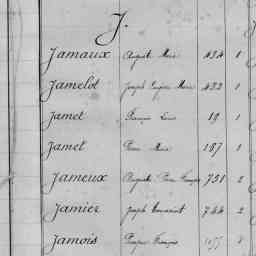 J.
Jamaux Auguste Marie 434 1
Jamelot Joseph Eugène Marie 433 1
Jamet François Louis 19 1
Jamet Pierre Marie 187 1
Jameux Auguste Pierre François 751 2
Jamier Joseph Toussaint 744 2
Jamois François